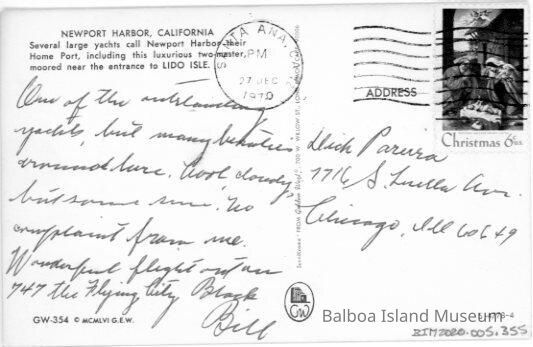 NEWPORT HARBOR, CALIFORNIA
Several large yachts call Newport Harbor their
Home Port, including this luxurious two-master,
moored near the entrance to LIDO ISLE.
SANTA ANA, CALIF.
PM
27 DEC
1970
ADDRESS
Christmas 6c
One of the outstanding
yachts, but many beauties
around here. Cool, cloudy,
but some sun. No
complaint from me.
Wonderful flight out on
747 the Flying City Block
Bill
Dick Parera
7716 S. Luella Ave.
Chicago, Ill 60649
GW-354 © MCMLVI G.E.W.
GW
Balboa Island Museum
BIM2020.005.355